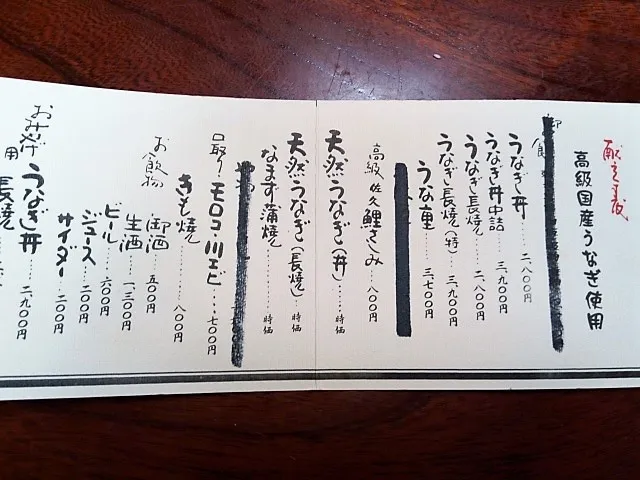 献立表
高級国産うなぎ使用
うなぎ丼……二、八〇〇円
うなぎ丼中詰……三、九〇〇円
うなぎ長焼……二、八〇〇円
うなぎ長焼(特)……三、九〇〇円
うな重……三、七〇〇円
高級 佐久鯉さしみ…八〇〇円
天然うなぎ(丼)……時価
天然うなぎ(長焼)……時価
なまず蒲焼………時価
モロコ・川エビ…七〇〇円
きも焼………八〇〇円
お食飲物
御酒 五〇〇円
生酒 一、三〇〇円
ビール……六〇〇円
ジュース……二〇〇円
サイダー……二〇〇円
おみやげ用
うなぎ丼 二、九〇〇円
長焼